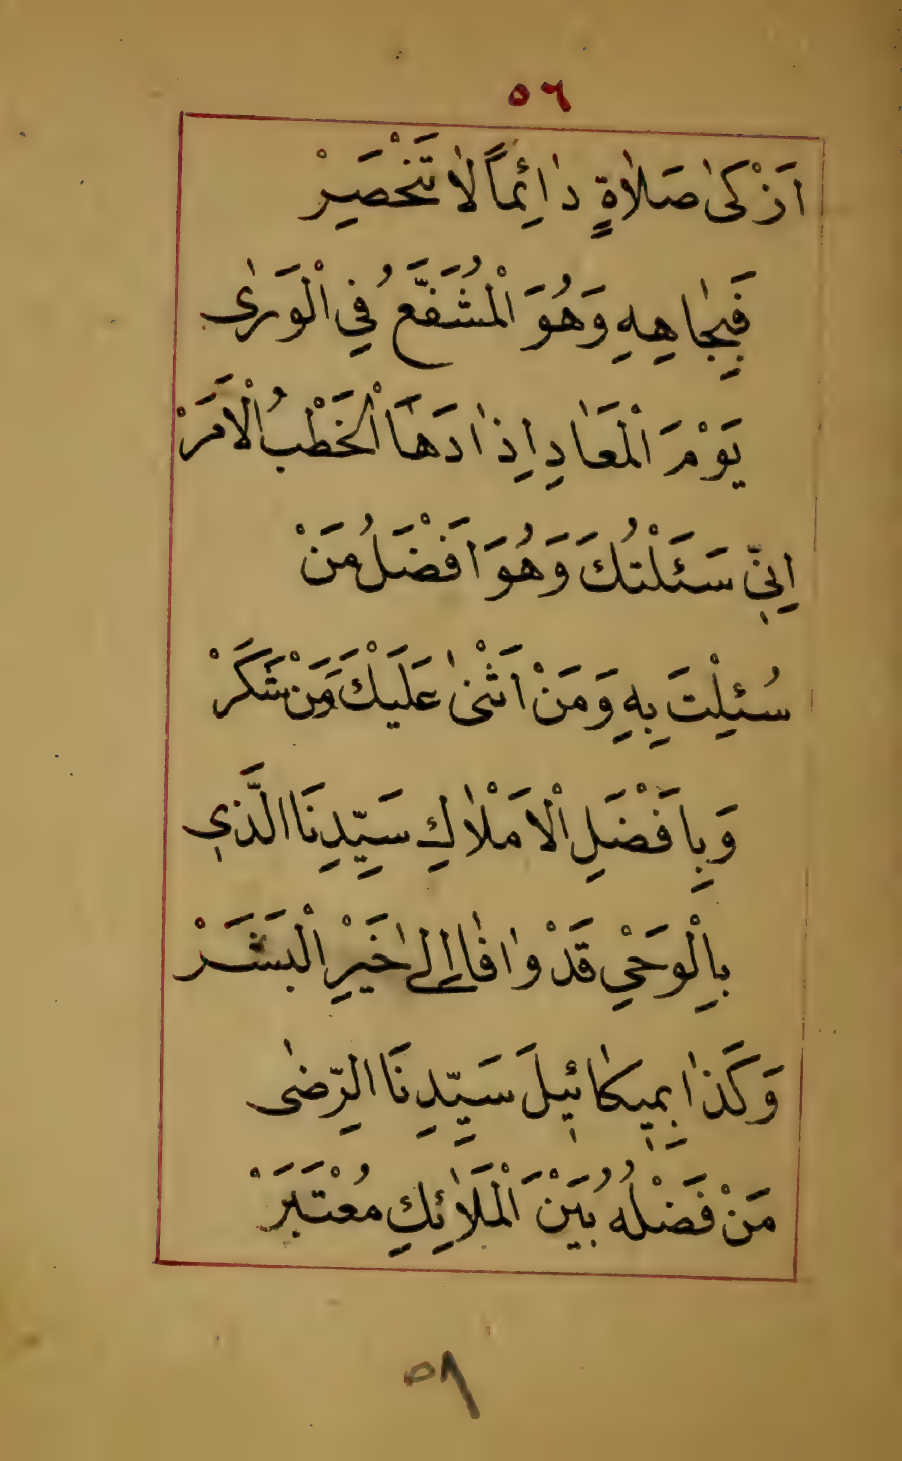 ٥٦
اَزْكىٰ صَلاٰةٍ دٰائِماً لاٰ تَنْحَصِرْ
فَبِجٰاهِهِ وَهُوَ الْمُشَفَّعُ فِي الْوَرٰى
يَوْمَ الْمَعَادِ اِذٰا دَهَا الْخَطْبُ الْاَمَرْ
اِنّي سَئَلْتُكَ وَهُوَ اَفْضَلُ مَنْ
سُئِلْتَ بِهِ وَمَنْ اَثْنىٰ عَلَيْكَ وَمَنْ شَكَرْ
وَبِاَفْضَلِ الْاَمْلاٰكِ سَيِّدِنَا الَّذي
بِالْوَحْيِ قَدْ وٰافٰا اِلىٰ خَيْرِ الْبَشَرْ
وَكَذٰا بِميكٰائيلَ سَيِّدِنَا الرِّضٰى
مَنْ فَضْلُهُ بَيْنَ الْمَلاٰئِكِ مُعْتَبَرْ
٥٨